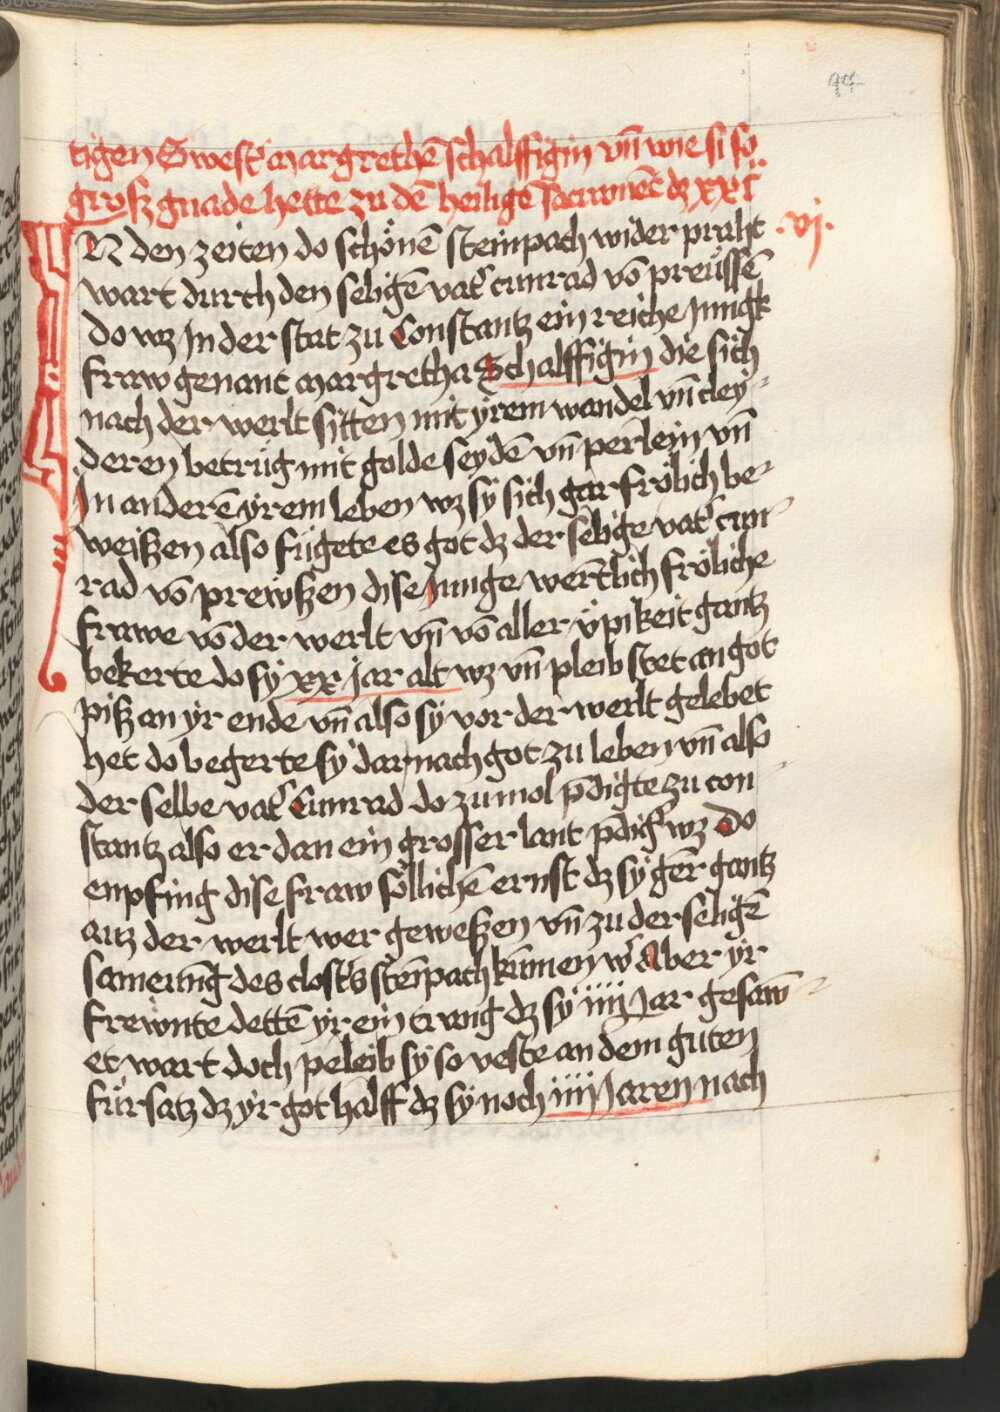 tigen Swest' margrethē schalffigin vn̄ wie si so
groſz gnade hette zu dē heiligē sacrmēt dz xxi
·vj·
IN den zeiten do schönē steinpach wider praht
wart durch den seligē vat' cunrad vō preüssē
do wz In der stat zu Constantz ein reiche Jungk
fraw genant margretha Schalffigin die sich
nach der werlt sitten mit yrem wandel vn̄ cley
deren betrüg mit golde seydē vn̄ perlein vn̄
In anderē yrem leben wz sy sich gar frölich be
weiſzen also fügete es got dz der selige vat' cun
rad vō prewſzen dise Junge wertlich fröliche
frawe vō der werlt vn̄ vō aller üpikeit gantz
bekerte do sy xx jar alt wz vn̄ pleib stet an got
piſz an yr ende vn̄ also sy vor der werlt gelebet
het do begerte sy darnach got zu leben vn̄ also
der selbe vat' Cunrad do zu mol p̄digte zu con
stantz also er dan ein grosser lant p̄dig' wz Do
empfing dise fraw söllichē ernst dz sy gēr gantz
auz der werlt wer geweſzen vn̄ zu der seligē
samenūg des closters stēpach kūmen w' Aber yr
frewnte dettē yr ein trang dz sy iiij Jar gesawm
et wart doch peleib sy so veste an dem guten
fürsatz dz yr got halff dz sy noch iiij Jaren nach